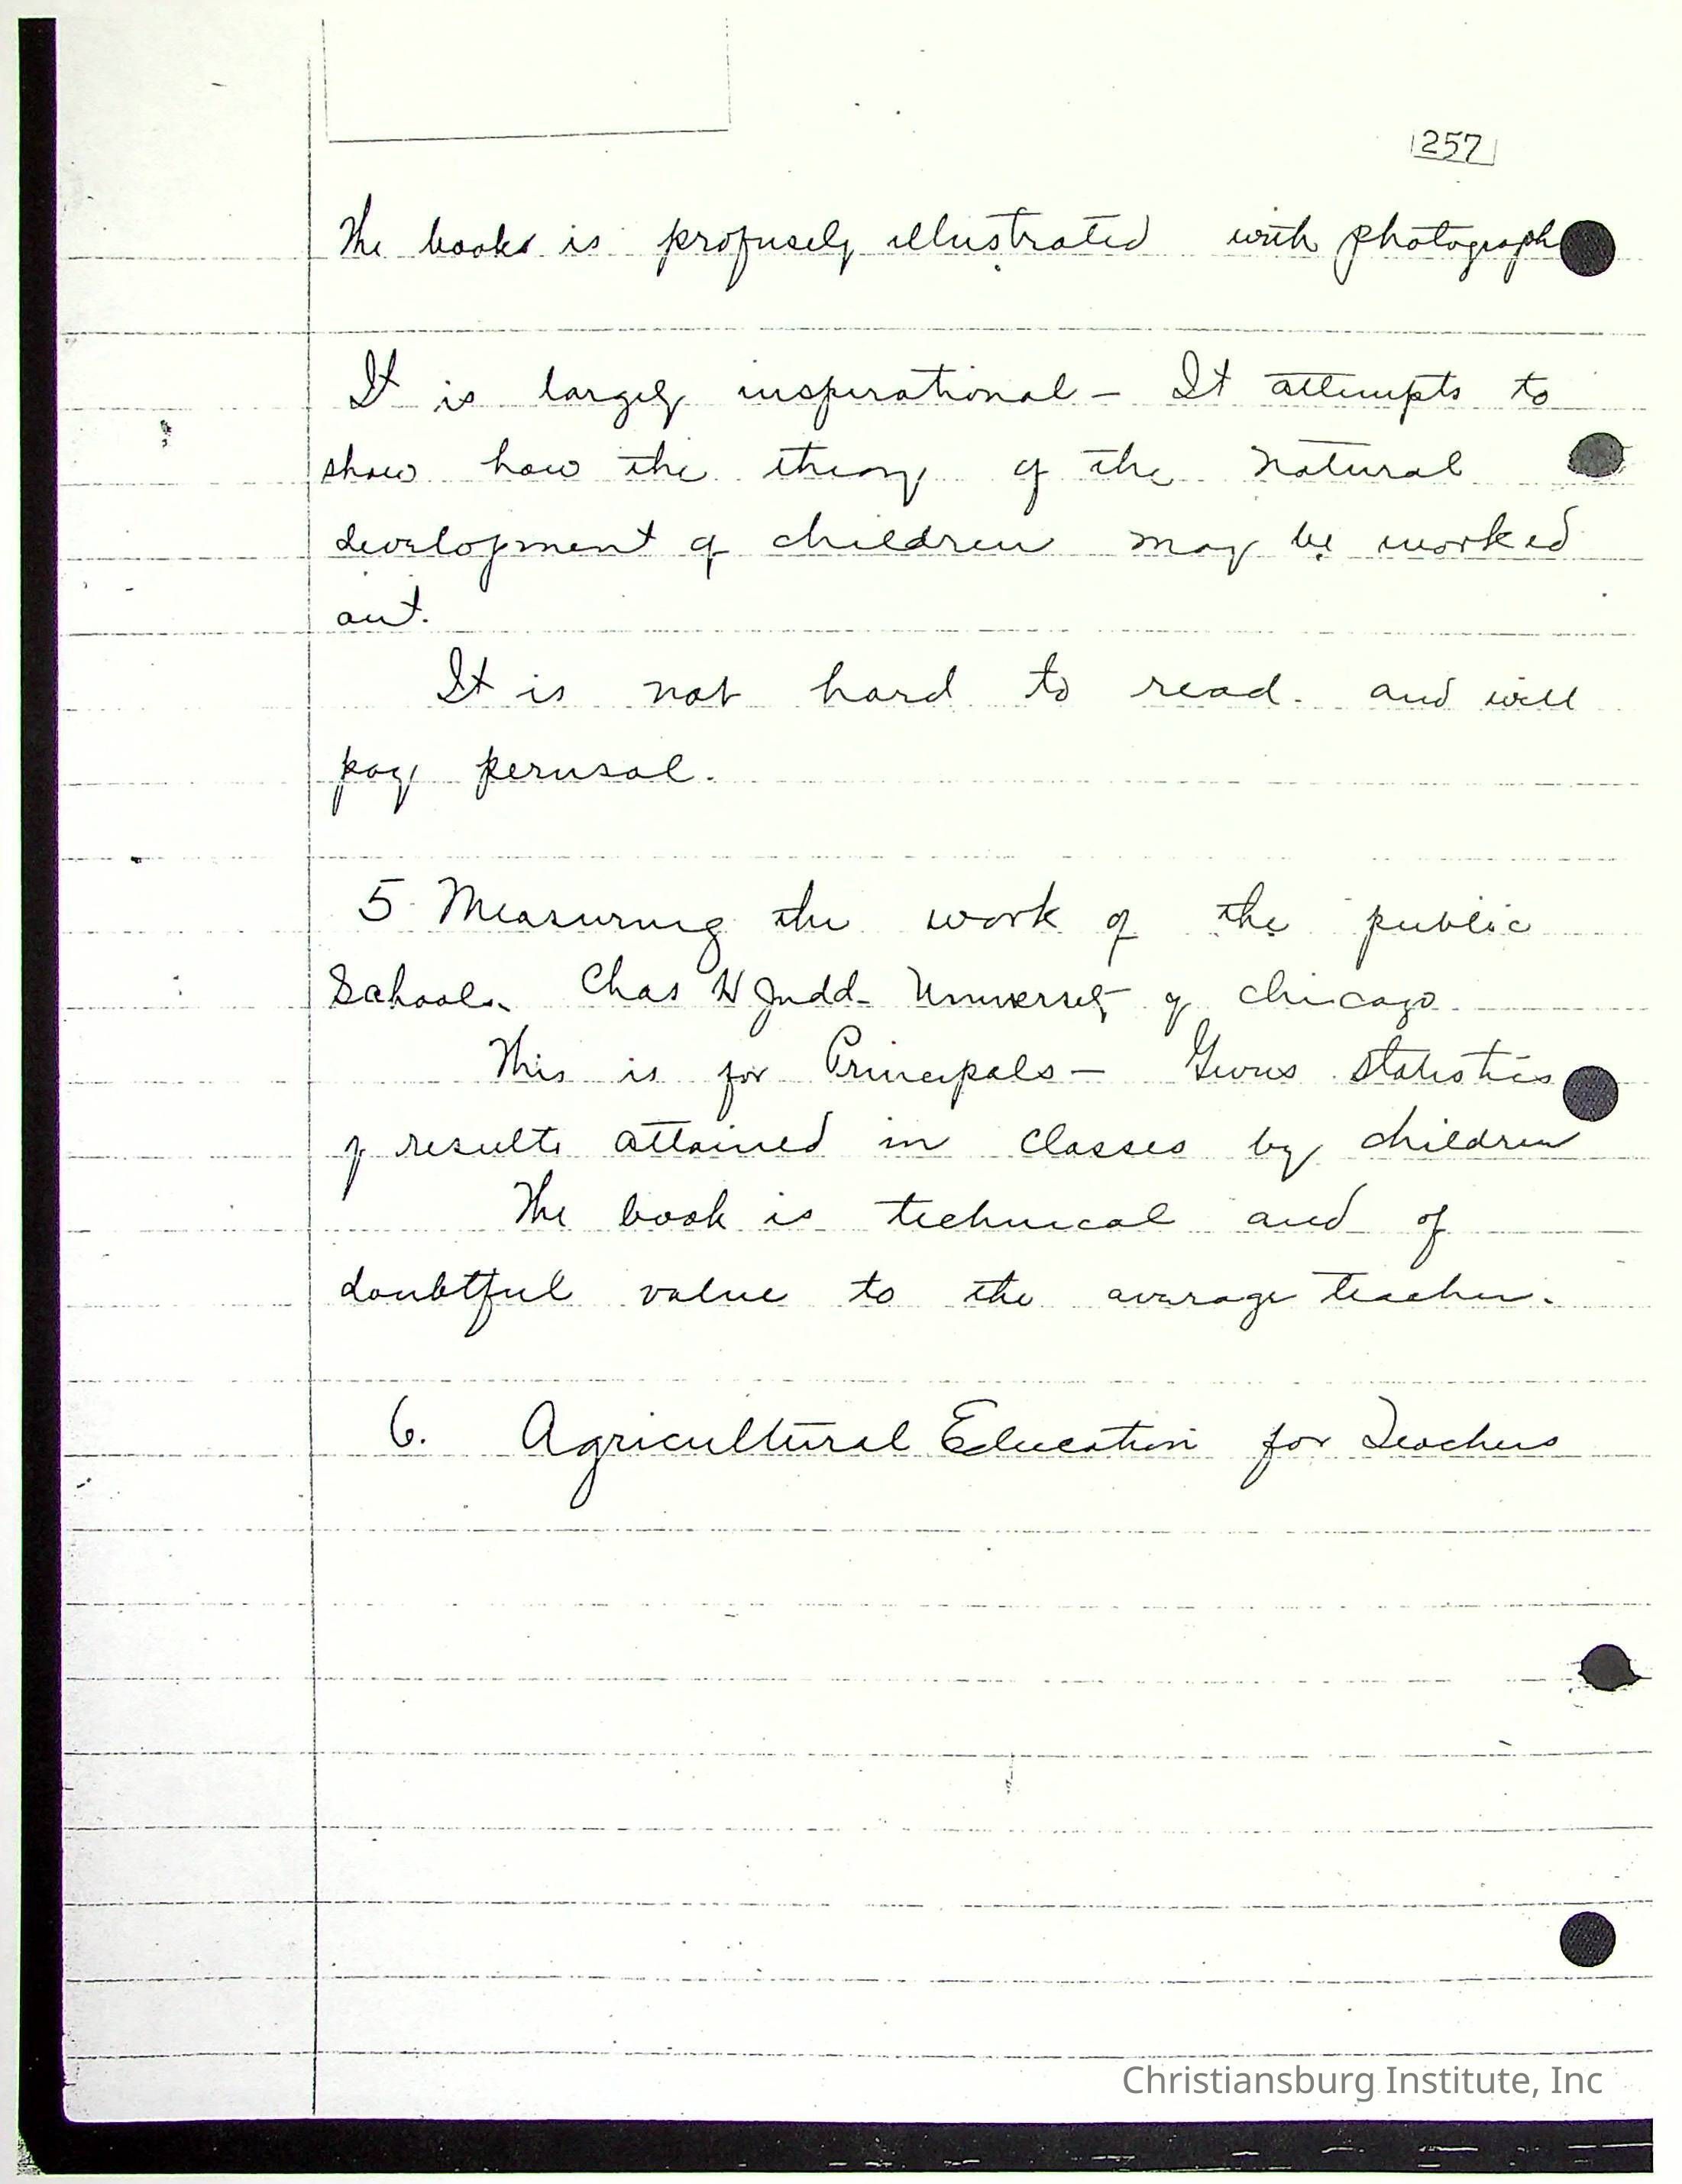 257
The books is profusely illustrated with photograph
It is largely inspirational - It attempts to
show how the theory of the natural
development of children may be worked
out.
It is not hard to read. and will
pay perusal.
5 Measuring the work of the public
Schools. Chas W Judd - University of Chicago
This is for Principals - Gives statistics
of results attained in classes by children
The book is technical and of
doubtful value to the average teacher.
6. Agricultural Education for Teachers
Christiansburg Institute, Inc